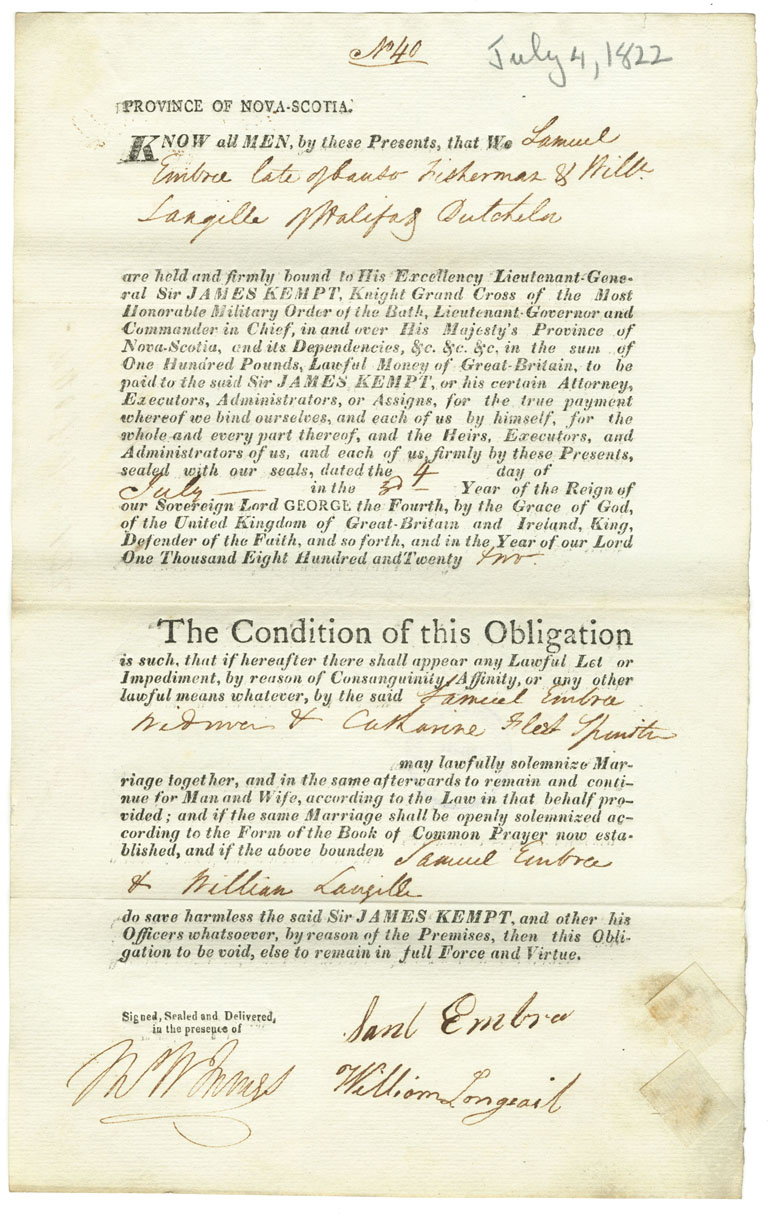 No 40
July 4, 1822
PROVINCE OF NOVA-SCOTIA.
KNOW all MEN, by these Presents, that We Samuel
Embree late of Canso Fisherman & Willm
Langille of Halifax
are held and firmly bound to His Excellency Lieutenant-Gene-
ral Sir JAMES KEMPT, Knight Grand Cross of the Most
Honorable Military Order of the Bath, Lieutenant-Governor and
Commander in Chief, in and over His Majesty's Province of
Nova-Scotia, and its Dependencies, &c. &c. &c. in the sum of
One Hundred Pounds, Lawful Money of Great-Britain, to be
paid to the said Sir JAMES KEMPT, or his certain Attorney,
Executors, Administrators, or Assigns, for the true payment
whereof we bind ourselves, and each of us by himself, for the
whole and every part thereof, and the Heirs, Executors, and
Administrators of us, and each of us, firmly by these Presents,
sealed with our seals, dated the 4 day of
July — in the 3rd — Year of the Reign of
our Sovereign Lord GEORGE the Fourth, by the Grace of God,
of the United Kingdom of Great-Britain and Ireland, King,
Defender of the Faith, and so forth, and in the Year of our Lord
One Thousand Eight Hundred and Twenty two.
The Condition of this Obligation
is such, that if hereafter there shall appear any Lawful Let or
Impediment, by reason of Consanguinity, Affinity, or any other
lawful means whatever, by the said Samuel Embree
Widower & Catharine Spinster
may lawfully solemnize Mar-
riage together, and in the same afterwards to remain and conti-
nue for Man and Wife, according to the Law in that behalf pro-
vided; and if the same Marriage shall be openly solemnized ac-
cording to the Form of the Book of Common Prayer now esta-
blished, and if the above bounden Samuel Embree
& William Langille
do save harmless the said Sir JAMES KEMPT, and other his
Officers whatsoever, by reason of the Premises, then this Obli-
gation to be void, else to remain in full Force and Virtue.
Signed, Sealed and Delivered,
in the presence of
Saml Embree
William